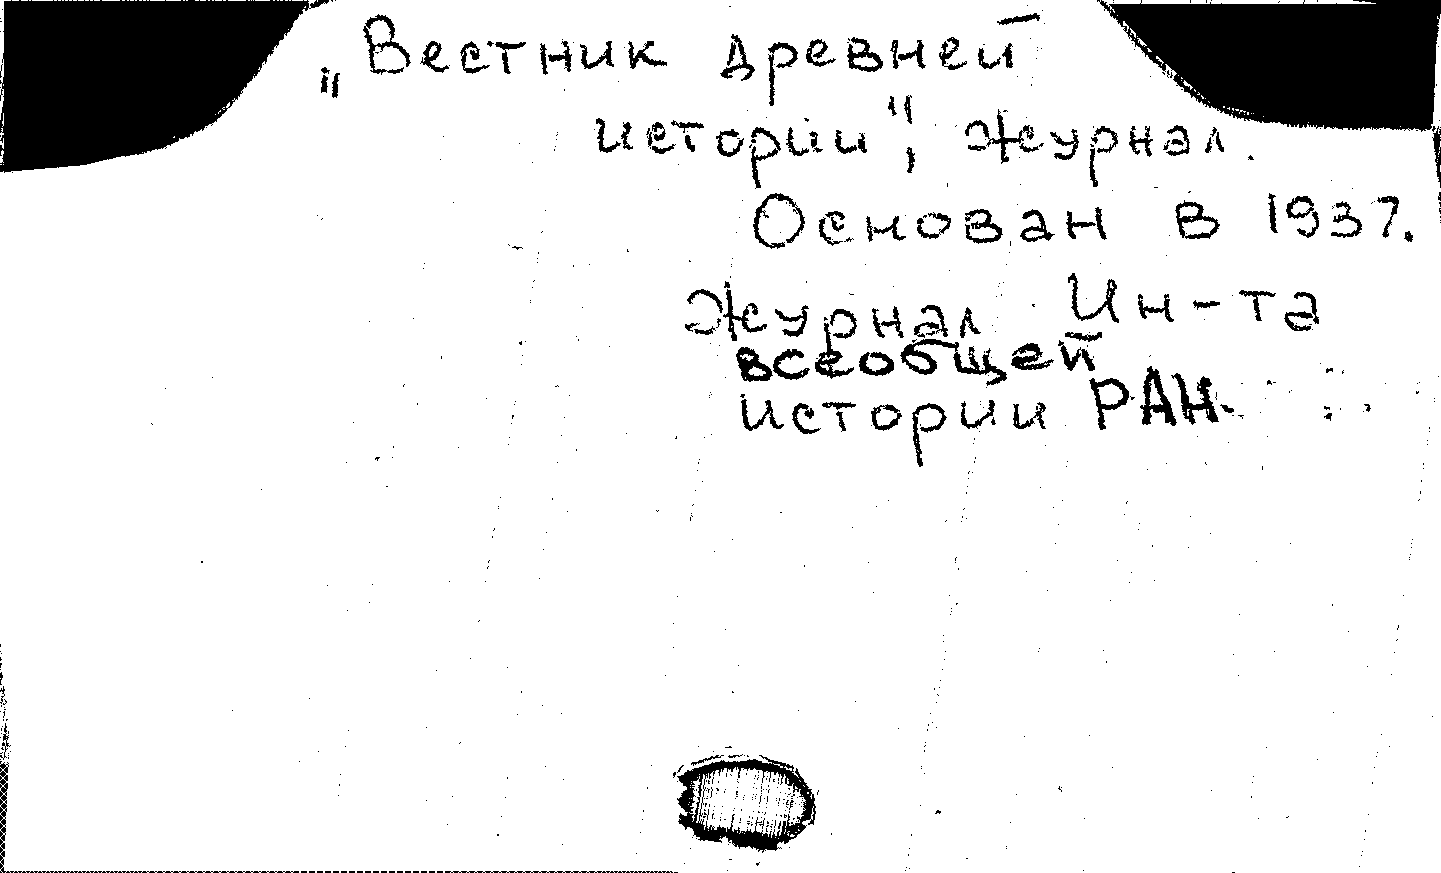 „Вестник древней
истории", журнал.
Основан в 1937.
Журнал Ин-та
всеобщей
истории РАН.